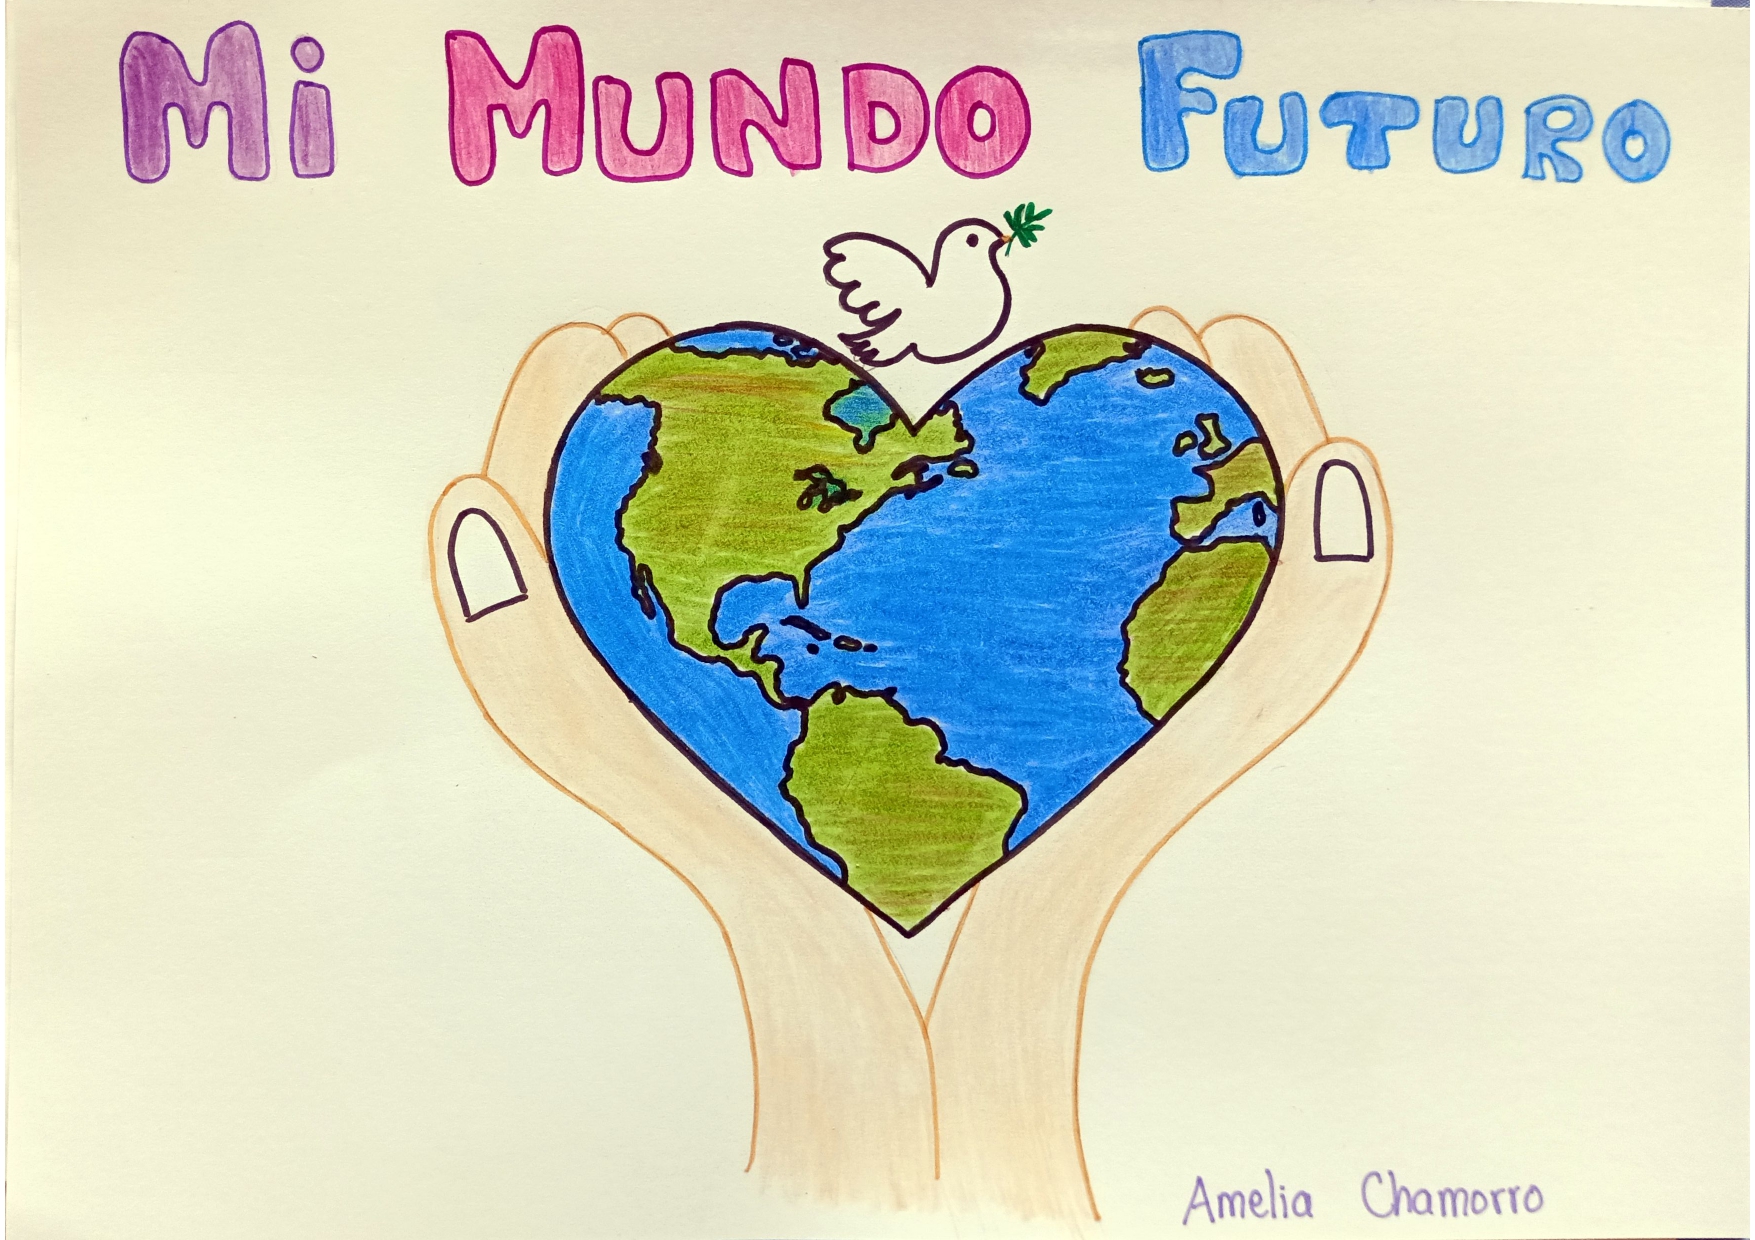 Mi MUNDO FUTURO
Amelia Chamorro